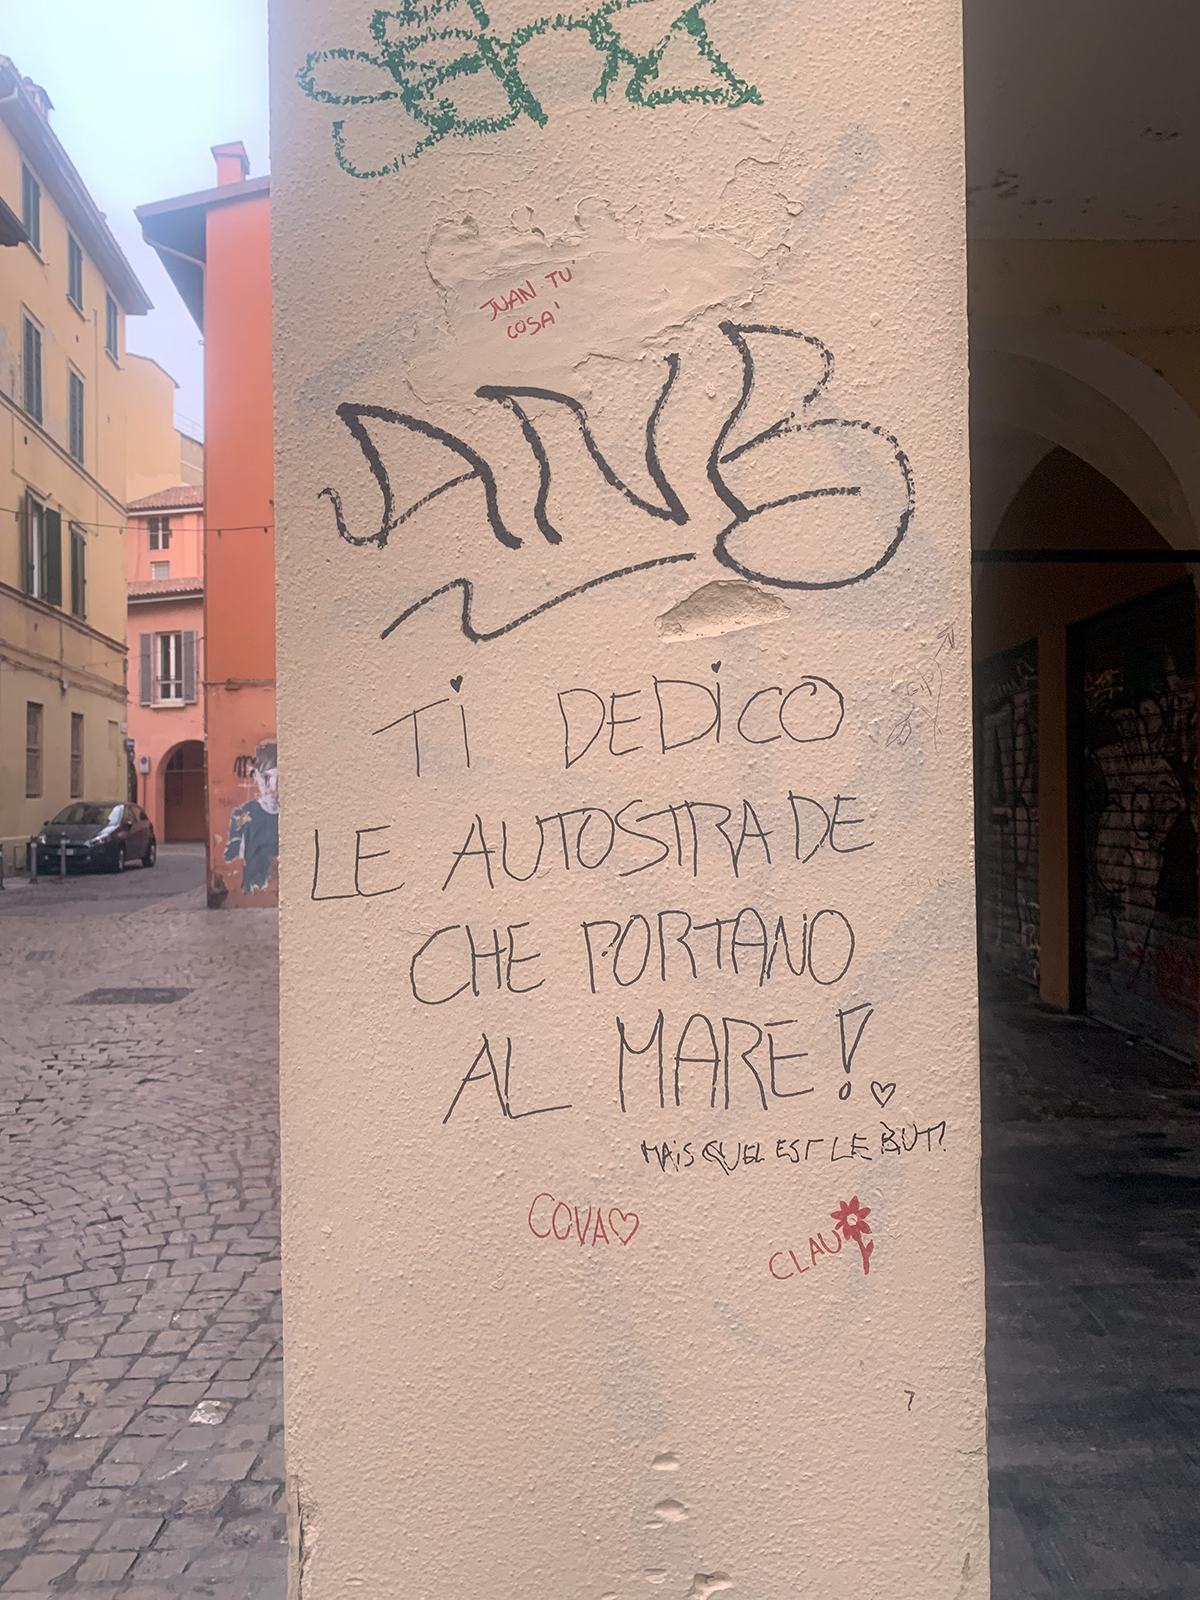 JUAN TU'
COSA'
ANB
Ti DEDiCO
LE AUTOSTRADE
CHE PORTANO
AL MARE!
MAiS QUEL EST LE BUT?
COVA
CLAU